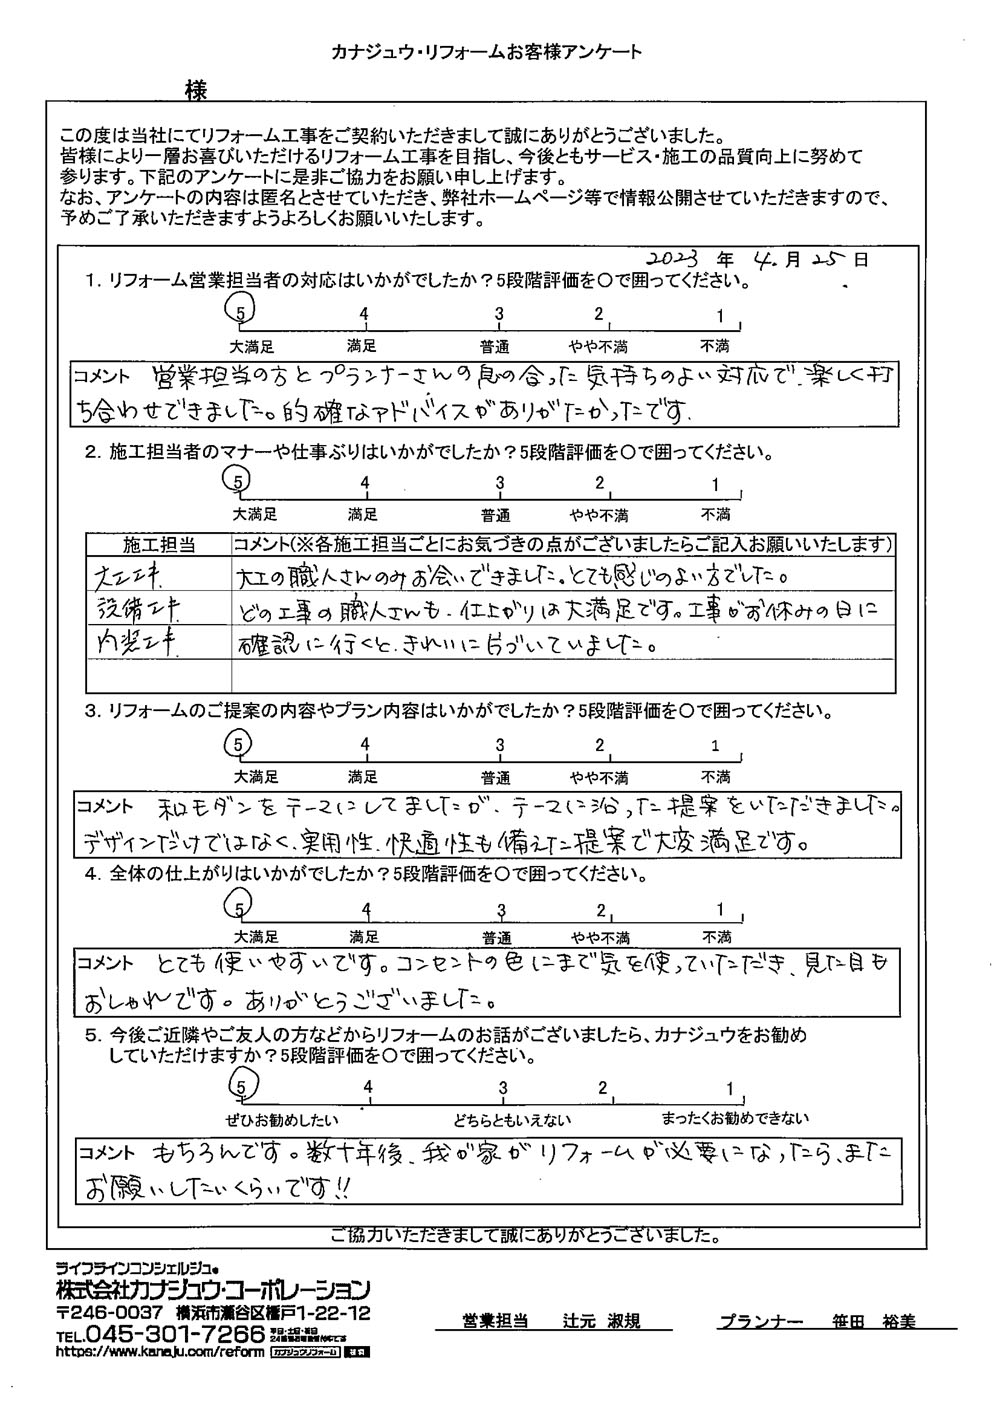 カナジュウ・リフォームお客様アンケート
様
この度は当社にてリフォーム工事をご契約いただきまして誠にありがとうございました。
皆様により一層お喜びいただけるリフォーム工事を目指し、今後ともサービス・施工の品質向上に努めて
参ります。下記のアンケートに是非ご協力をお願い申し上げます。
なお、アンケートの内容は匿名とさせていただき、弊社ホームページ等で情報公開させていただきますので、
予めご了承いただきますようよろしくお願いいたします。
2023 年 4.月 25 日
1. リフォーム営業担当者の対応はいかがでしたか?5段階評価を○で囲ってください。
5 4 3 2 1
大満足 満足 普通 やや不満 不満
コメント 営業担当の方とプランナーさんの息の合った気持ちのよい対応で、楽しく打
ち合わせできました。的確なアドバイスがありがたかったです.
2. 施工担当者のマナーや仕事ぶりはいかがでしたか?5段階評価を○で囲ってください。
5 4 3 2 1
大満足 満足 普通 やや不満 不満
施工担当 コメント(※各施工担当ごとにお気づきの点がございましたらご記入お願いいたします)
大工工事. 大工の職人さんのみお会いできました。とても感じのよい方でした。
設備工事 どの工事の職人さんも、仕上がりは大満足です。工事がお休みの日に
内装工事. 確認に行くと、きれいに片づいていました。
3. リフォームのご提案の内容やプラン内容はいかがでしたか?5段階評価を○で囲ってください。
5 4 3 2 1
大満足 満足 普通 やや不満 不満
コメント 和モダンをテーマにしてましたが、テーマに沿った提案をいただきました。
デザインだけではなく、実用性、快適性も備えた提案で大変満足です。
4. 全体の仕上がりはいかがでしたか?5段階評価を○で囲ってください。
5 4 3 2 1
大満足 満足 普通 やや不満 不満
コメント とても使いやすいです。コンセントの色にまで気を使っていただき、見た目も
おしゃれです。ありがとうございました。
5. 今後ご近隣やご友人の方などからリフォームのお話がございましたら、カナジュウをお勧め
していただけますか?5段階評価を○で囲ってください。
5 4 3 2 1
ぜひお勧めしたい どちらともいえない まったくお勧めできない
コメント もちろんです。数十年後、我が家がリフォームが必要になったら、また
お願いしたいくらいです!!
ご協力いただきまして誠にありがとうございました。
ライフラインコンシェルジュ。
株式会社カナジュウ・コーポレーション
〒246-0037 横浜市瀬谷区橋戸1-22-12
TEL.045-301-7266
https://www.kanaju.com/reform カナジュウリフォーム 検索
営業担当 辻元 淑規 プランナー 笹田 裕美